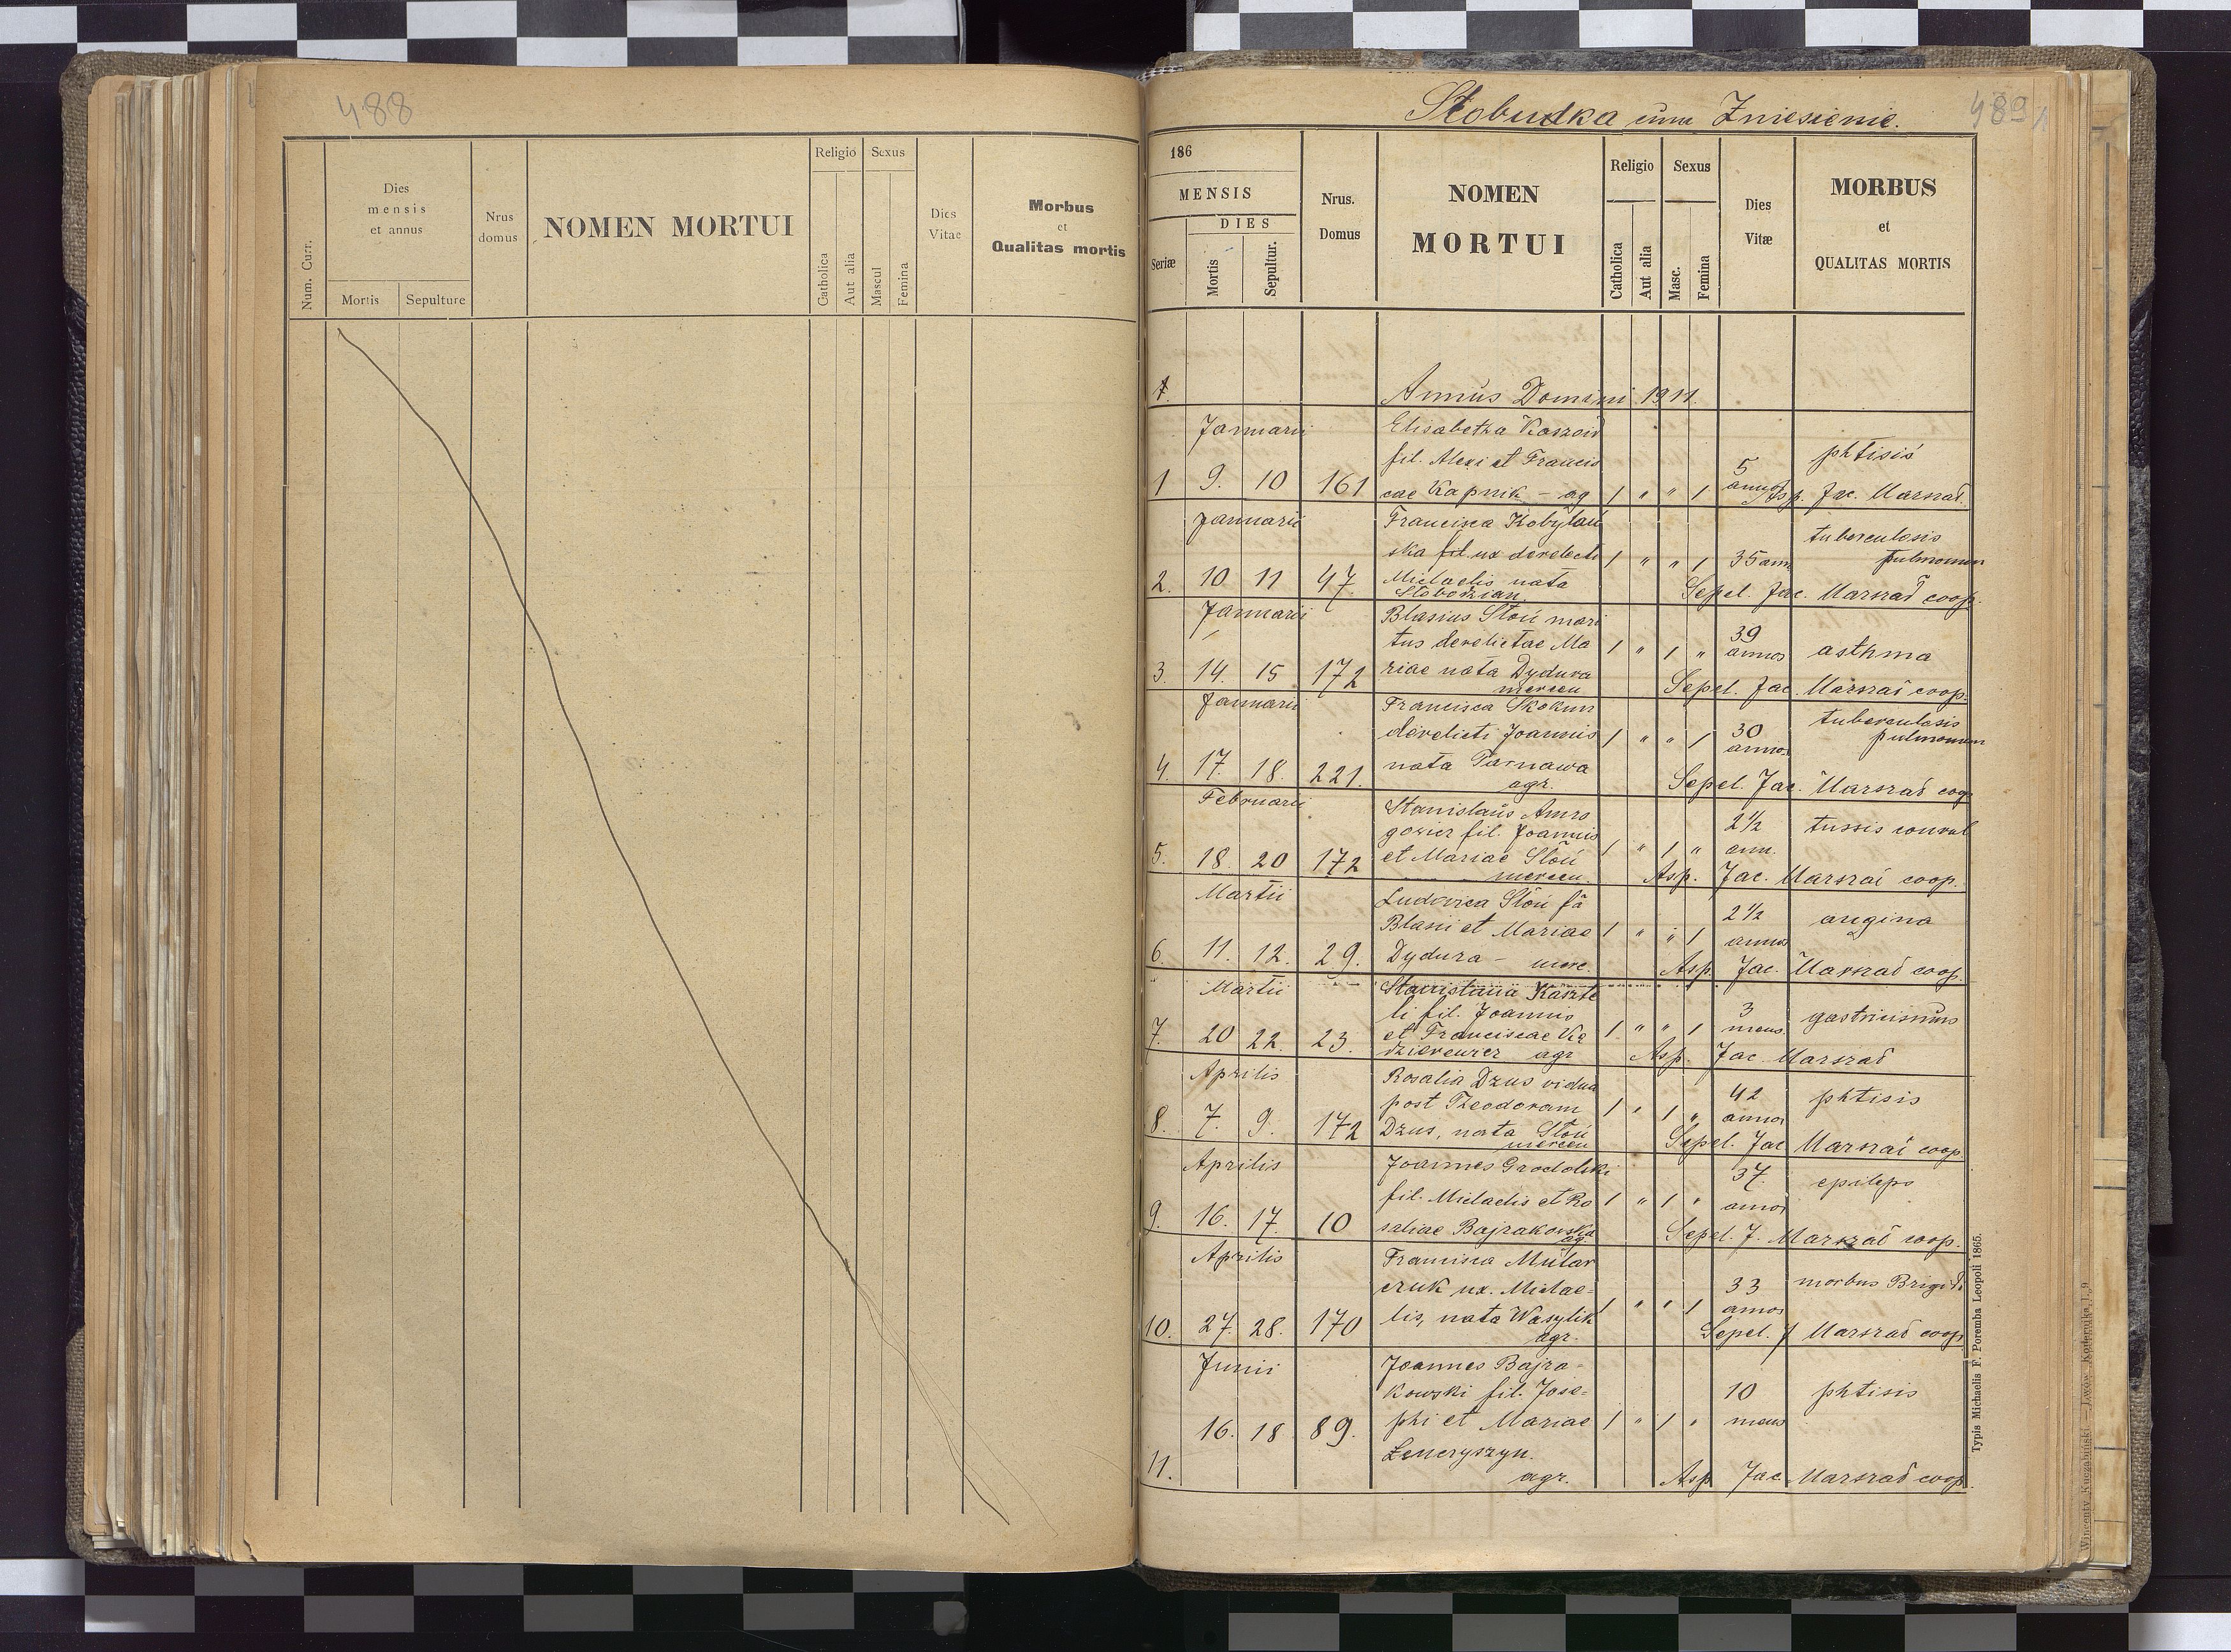 488
Num. Curr.
Dies
mensis
et annus
Mortis
Sepulture
Nrus
domus
NOMEN MORTUI
Religio
Catholica
Aut alia
Sexus
Mascul
Femina
Dies
Vitae
Morbus
et
Qualitas mortis
Słobudka cum Zniesienie.
489
186
MENSIS
DIES
Seriæ
Mortis
Sepultur.
Nrus.
Domus
NOMEN
MORTUI
Religio
Catholica
Aut alia
Sexus
Masc.
Femina
Dies
Vitæ
MORBUS
et
QUALITAS MORTIS
Annus Domini 1911.
Januarii Elisabetha
fil. Alexi et Francis phtisis
1 9. 10 161 cae Kapnik - ag 1 " " 1 5 annos Asp. Jac. Marszał.
Januarii Francisca Kobylań tuberculosis
ska fil ux derelicti 1 " " 1 35 ann pulmonum
2. 10 11 47. Michaelis nata
Słobodzian Sepel. Jac. Marszał coop.
Januarii Blasius Słoń mari
tus derelictae Ma 1 " 1 " 39 annos asthma
3. 14. 15 172 riae nata Dydura
mercen Sepel. Jac. Marszał coop.
Januarii Francisca Skokun tuberculosis
derelicti Joannis 1 " " 1 30 annos pulmonum
4. 17. 18. 221. nata Tarnawa
agr. Sepel. Jac. Marszał coop
Februarii Stanislaus Amro
gowicz fil. Joannis 2 1/2 tussis convul
5. 18. 20 172 et Mariae Słoń 1 " 1 " ann.
mercen. Asp. Jac. Marszał coop.
Martii Ludovica Słoń fa
Blasii et Mariae 1 " " 1 2 1/2 annos angina
6. 11. 12. 29. Dydura - merc. Asp. Jac. Marszał coop.
Martii Kaszte
li fil. Joannis 3 gastricismus
7. 20 22. 23. et Franciscae Ka 1 " " 1 mens.
agr Asp. Jac. Marszał
Aprilis Rosalia Dzus vidua
post Theodorum 1 " 1 " 42 annos phtisis
8. 7. 9. 172 Dzus, nata Słoń
mercen Sepel. Jac Marszał coop.
Aprilis Joannes Grodolski
fil. Michaelis et Ro 1 " 1 " 37. annos epileps
9. 16. 17. 10 saliae Bajrakowska
ag. Sepel. J. Marszał coop.
Aprilis Francisca Mular
czuk ux. Michae- 33 morbus Brigidi
10. 27. 28. 170 lis, nata Wasylik 1 " " 1 annos
agr. Sepel. J Marszał coop
Junii Joannes Bajra-
kowski fil. Jose- 10 phtisis
16. 18 89. phi et Mariae 1 " 1 " mens
11. agr. Asp Jac. Marszał coop
Typis Michaelis F. Poremba Leopoli 1865.